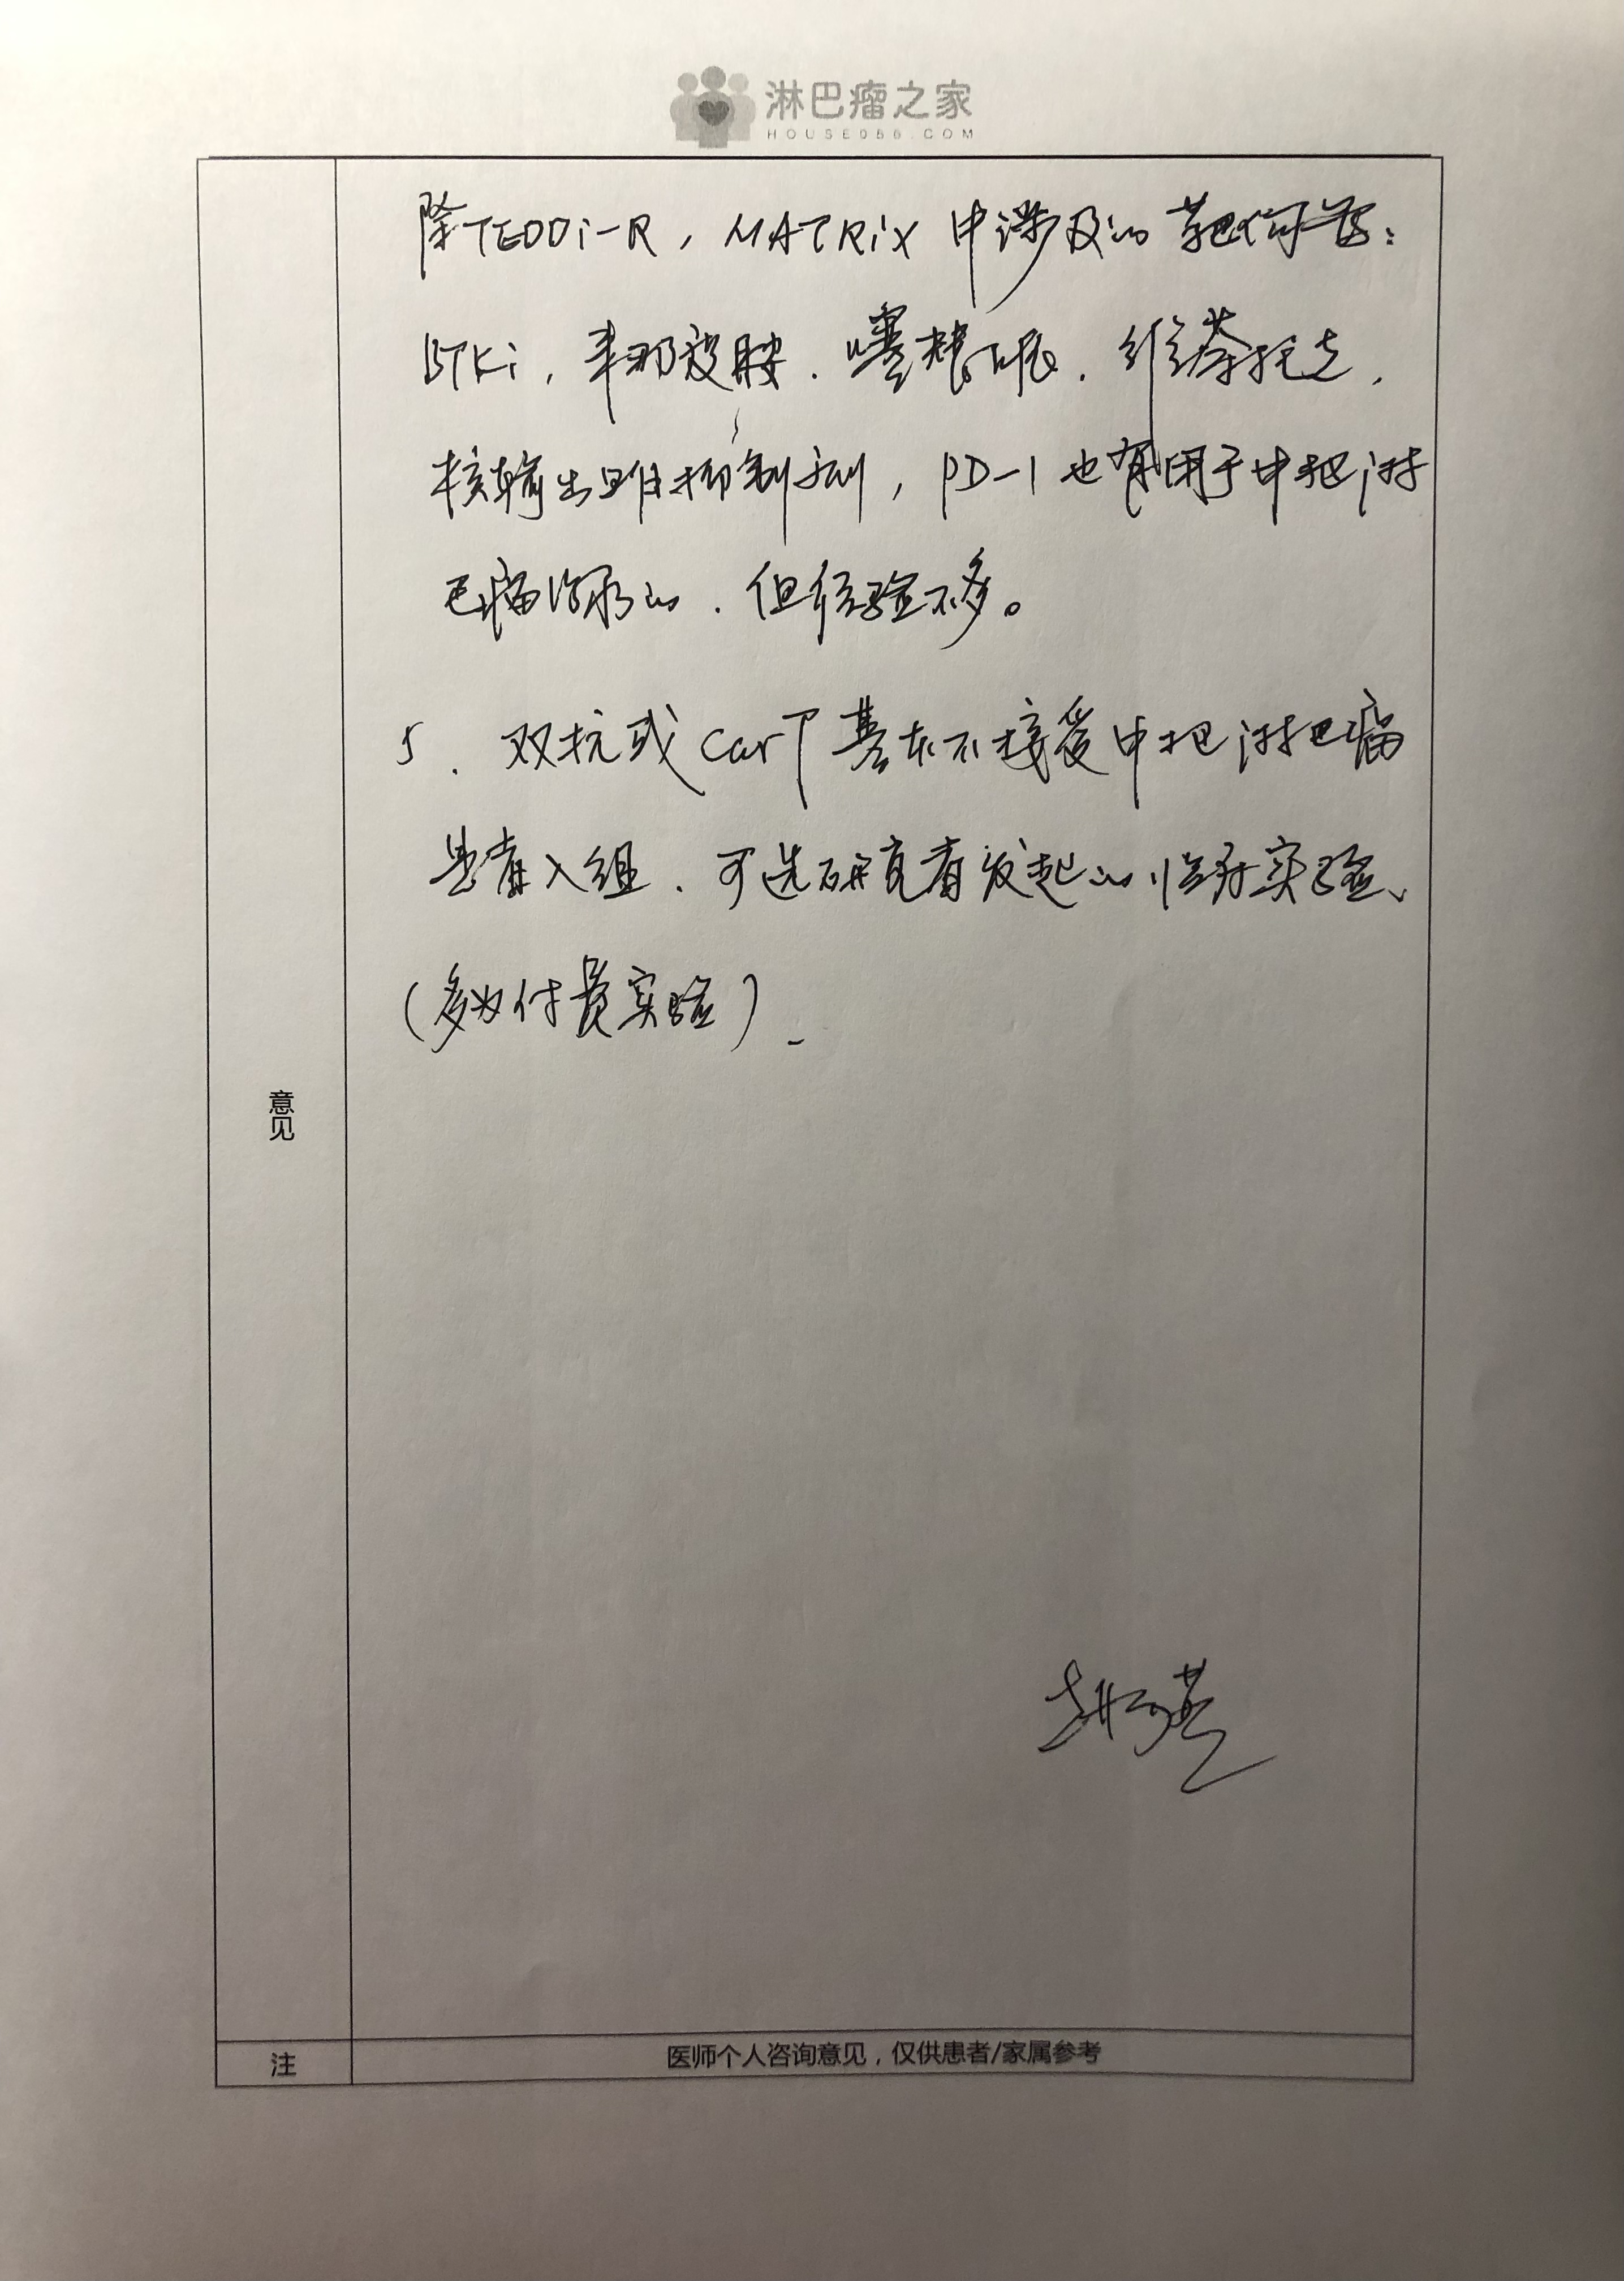 淋巴瘤之家
HOUSE086.COM
除TEDDi-R,MATRix中涉及的靶向药:
BTKi,来那度胺.塞替派.维奈托克,
核输出蛋白抑制剂,PD-1也有用于中枢淋
巴瘤治疗的.但经验不多。
5.双抗或CarT基本不接受中枢淋巴瘤
患者入组.可选研究者发起的临床实验、
(多为付费实验).
意见
注
医师个人咨询意见,仅供患者/家属参考